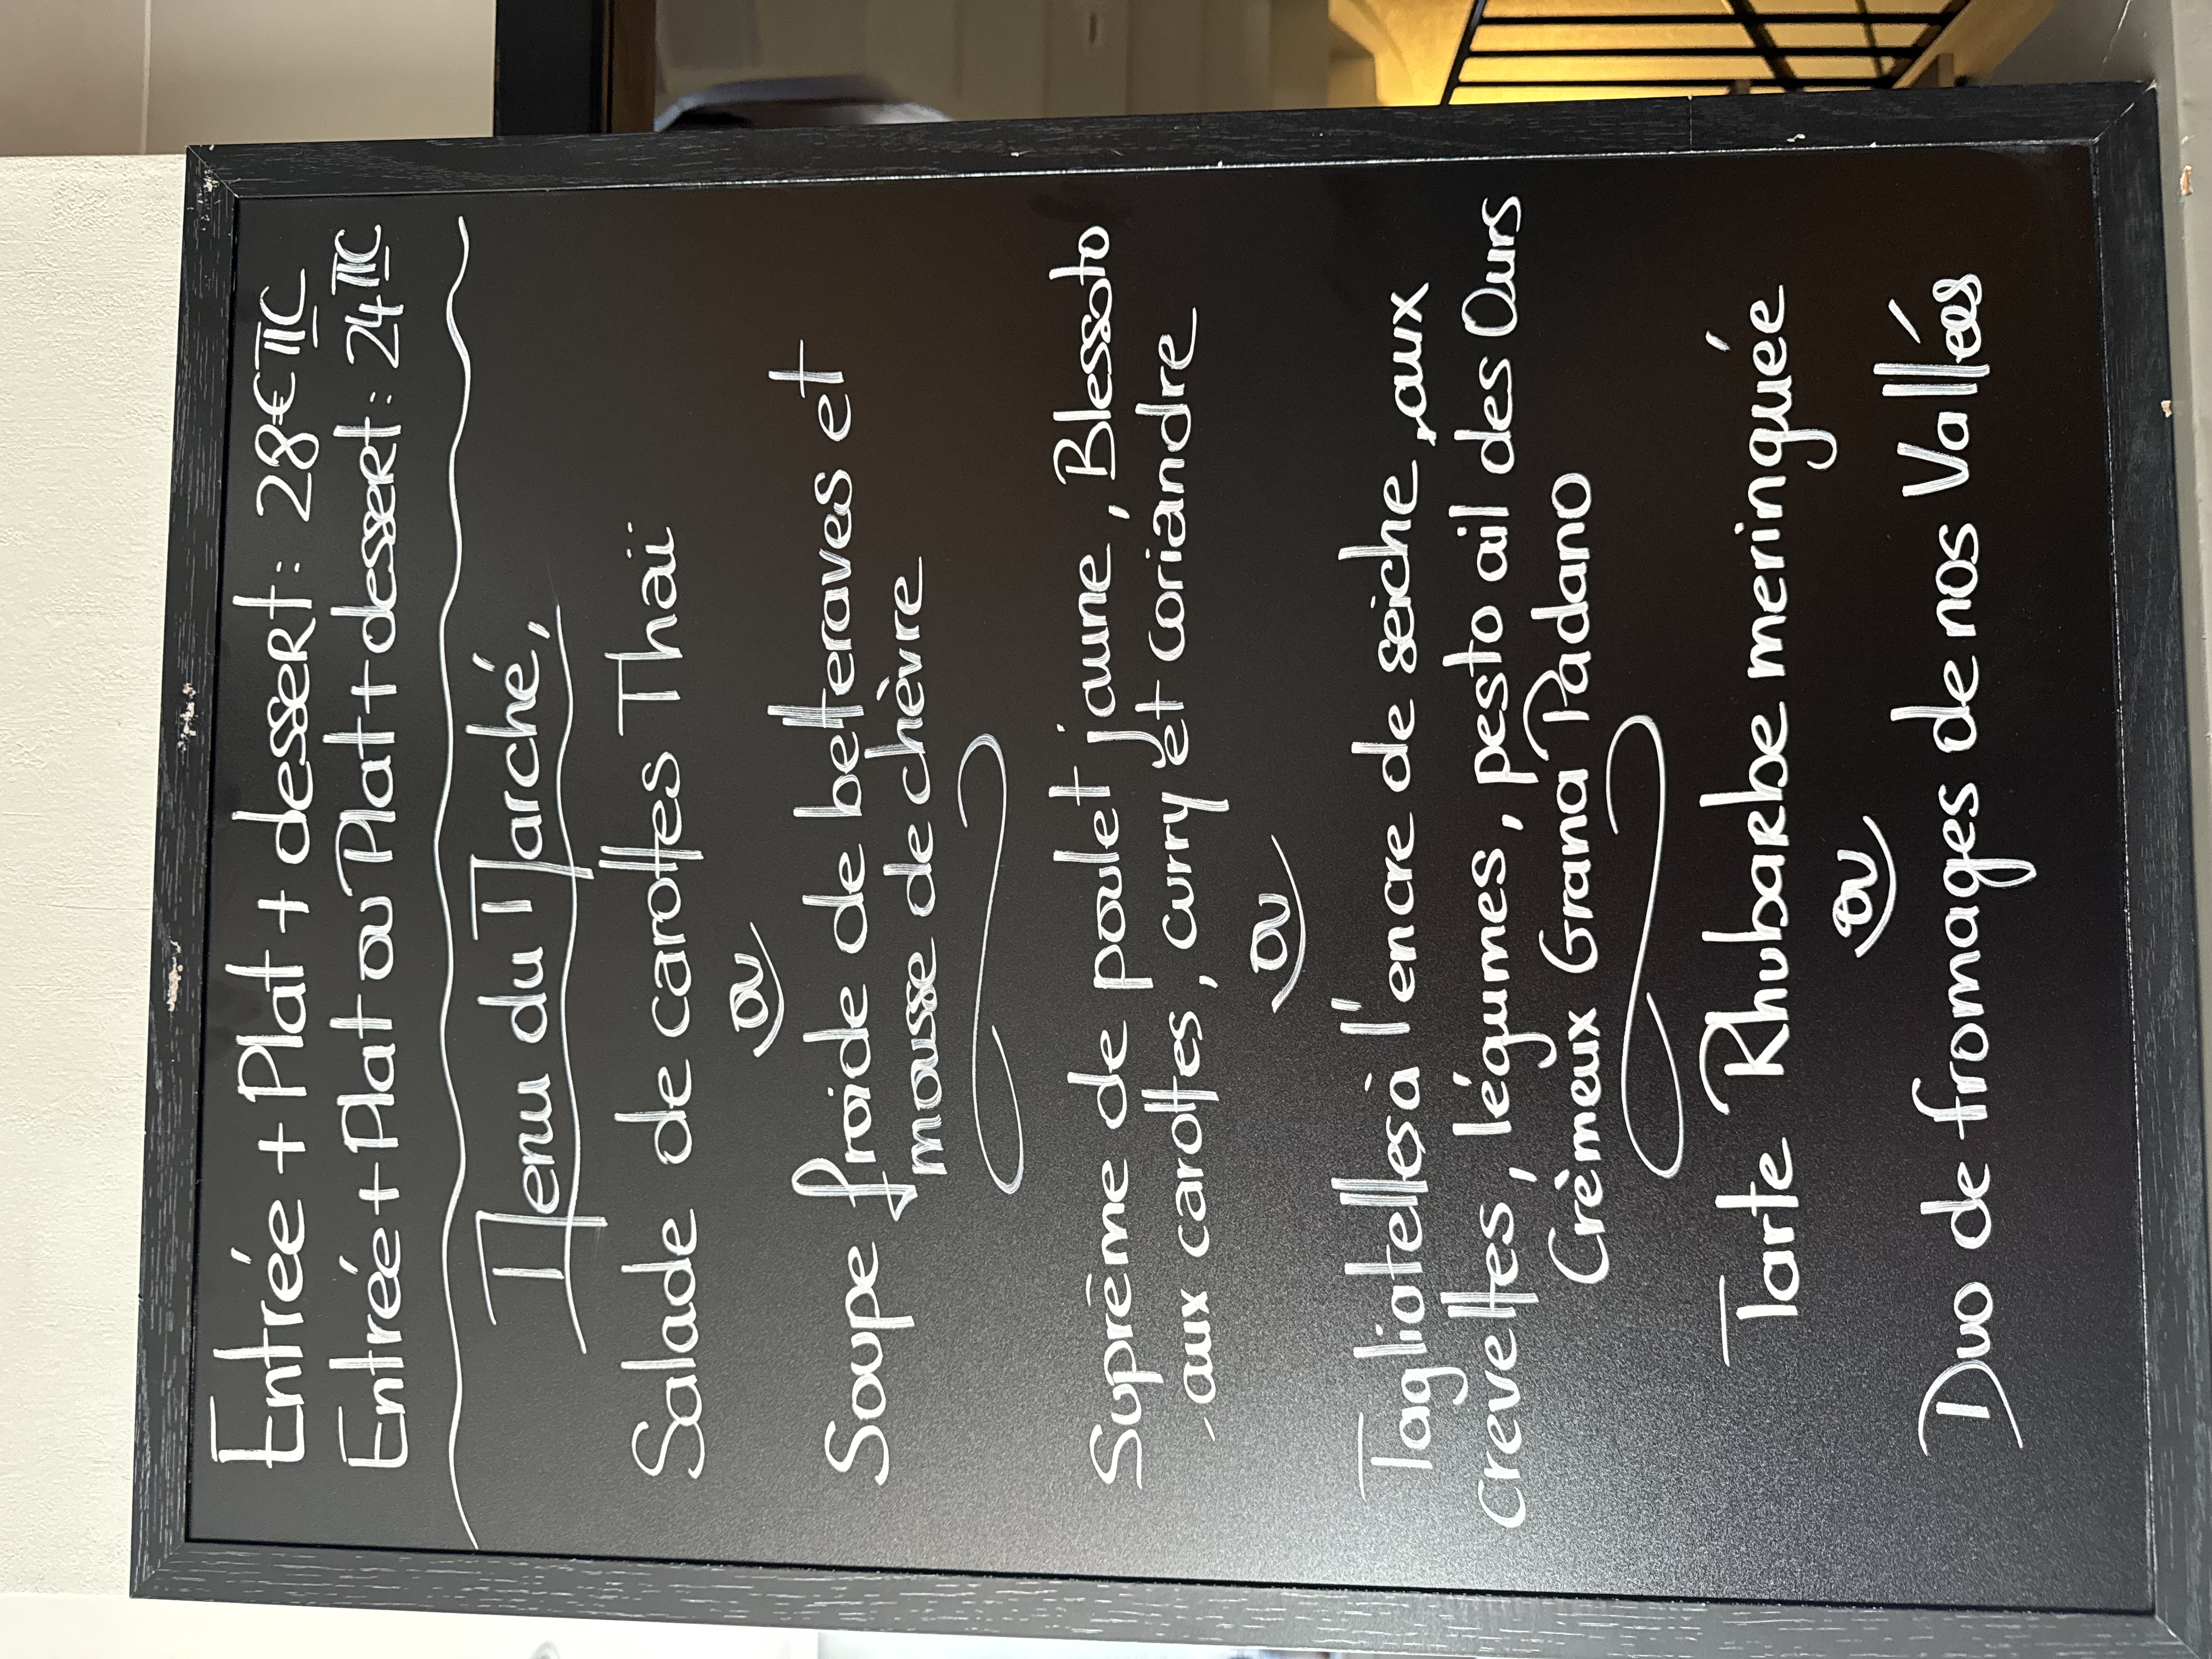 Entrée + Plat + dessert : 28€ TTC
Entrée + Plat ou Plat + dessert : 24 TTC
Menu du Marché,
Salade de carottes Thaï
ou
Soupe froide de betteraves et
mousse de chèvre
Suprême de poulet jaune, Blessoto
aux carottes, curry et coriandre
ou
Tagliatelles à l'encre de seiche, aux
crevettes, légumes, pesto ail des Ours
Crèmeux Grana Padano
Tarte Rhubarbe meringuée
ou
Duo de fromages de nos Vallées